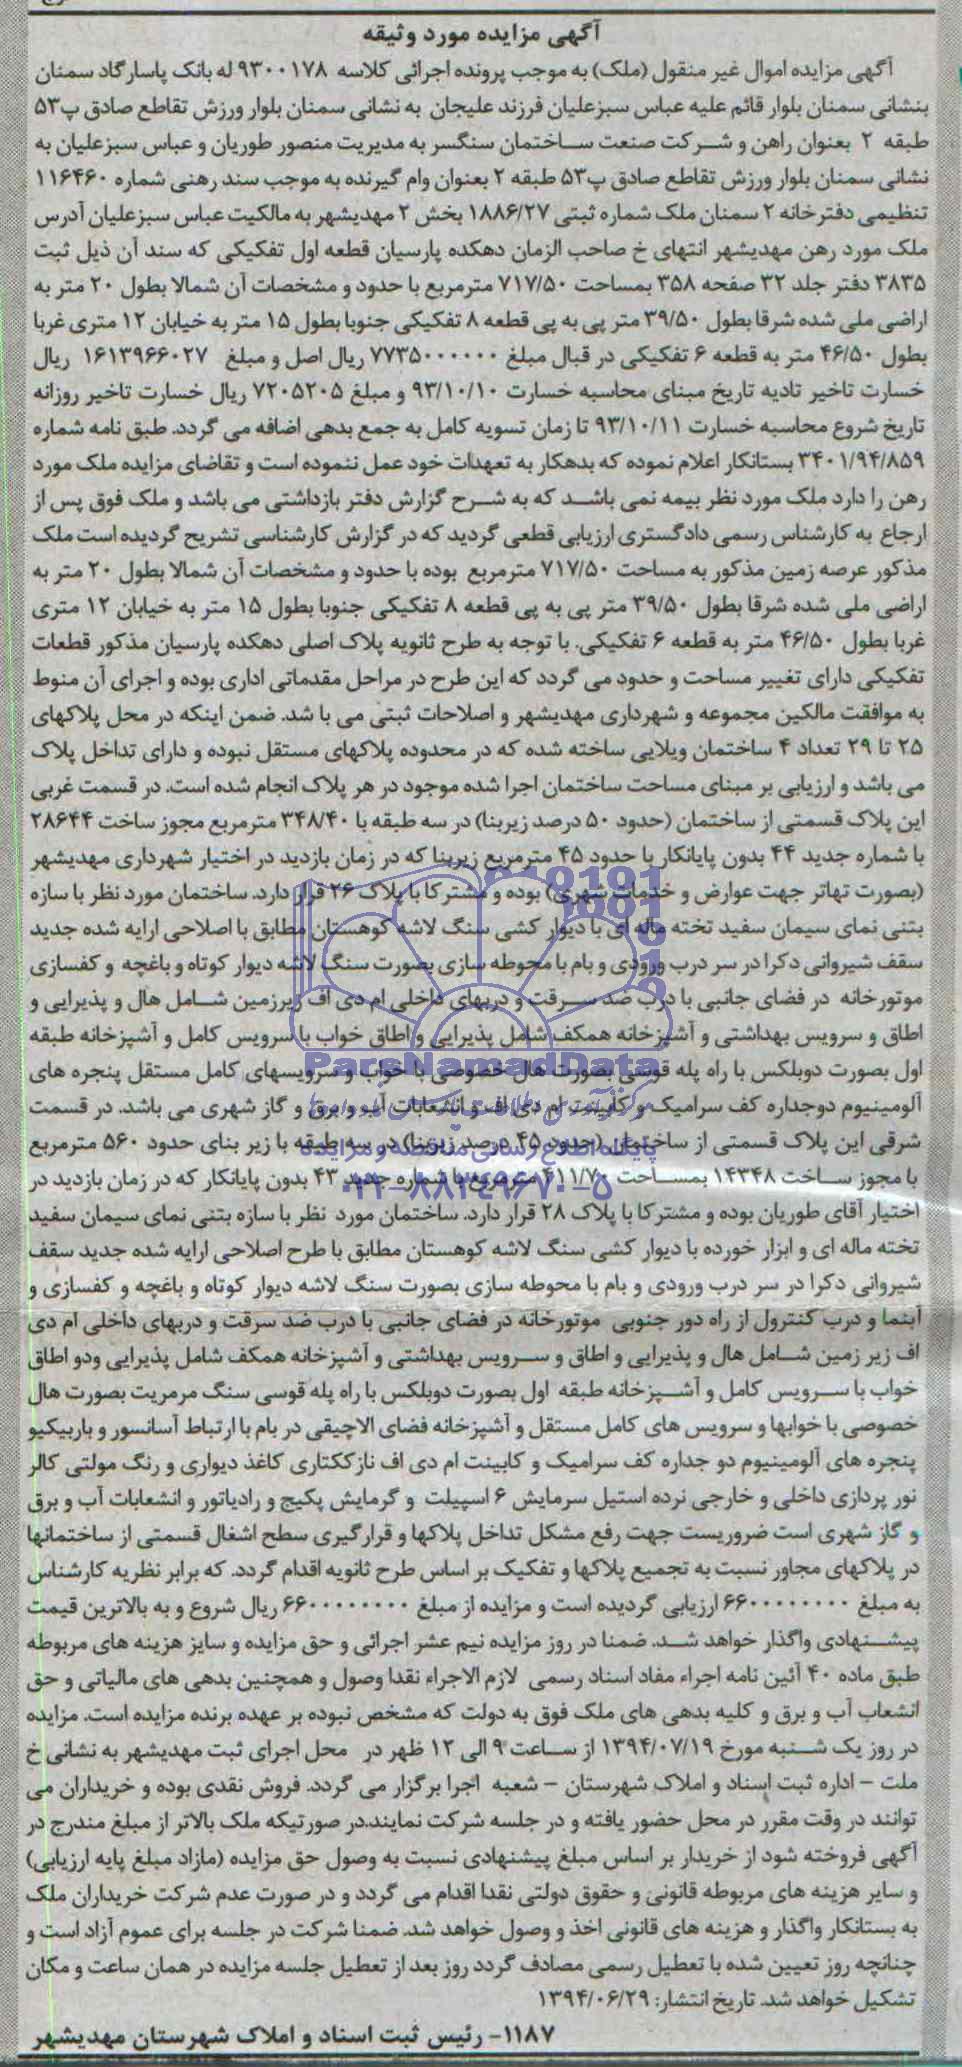 آگهی مزایده مورد وثیقه
آگهی مزایده اموال غیر منقول (ملک) به موجب پرونده اجرائی کلاسه ۹۳۰۰۱۷۸ له بانک پاسارگاد سمنان
بنشانی سمنان بلوار قائم علیه عباس سبزعلیان فرزند علیجان به نشانی سمنان بلوار ورزش تقاطع صادق پ۵۳
طبقه ۲ بعنوان راهن و شرکت صنعت ساختمان سنگسر به مدیریت منصور طوریان و عباس سبزعلیان به
نشانی سمنان بلوار ورزش تقاطع صادق پ۵۳ طبقه ۲ بعنوان وام گیرنده به موجب سند رهنی شماره ۱۱۶۴۶۰
تنظیمی دفترخانه ۲ سمنان ملک شماره ثبتی ۱۸۸۶/۲۷ بخش ۲ مهدیشهر به مالکیت عباس سبزعلیان آدرس
ملک مورد رهن مهدیشهر انتهای خ صاحب الزمان دهکده پارسیان قطعه اول تفکیکی که سند آن ذیل ثبت
۳۸۳۵ دفتر جلد ۳۲ صفحه ۳۵۸ بمساحت ۷۱۷/۵۰ مترمربع با حدود و مشخصات آن شمالا بطول ۲۰ متر به
اراضی ملی شده شرقا بطول ۳۹/۵۰ متر پی به پی قطعه ۸ تفکیکی جنوبا بطول ۱۵ متر به خیابان ۱۲ متری غربا
بطول ۴۶/۵۰ متر به قطعه ۶ تفکیکی در قبال مبلغ ۷۷۳۵۰۰۰۰۰۰ ریال اصل و مبلغ ۱۶۱۳۹۶۶۰۲۷ ریال
خسارت تاخیر تادیه تاریخ مبنای محاسبه خسارت ۹۳/۱۰/۱۰ و مبلغ ۷۲۰۵۲۰۵ ریال خسارت تاخیر روزانه
تاریخ شروع محاسبه خسارت ۹۳/۱۰/۱۱ تا زمان تسویه کامل به جمع بدهی اضافه می گردد. طبق نامه شماره
۳۴۰۱/۹۴/۸۵۹ بستانکار اعلام نموده که بدهکار به تعهدات خود عمل ننموده است و تقاضای مزایده ملک مورد
رهن را دارد ملک مورد نظر بیمه نمی باشد که به شرح گزارش دفتر بازداشتی می باشد و ملک فوق پس از
ارجاع به کارشناس رسمی دادگستری ارزیابی قطعی گردید که در گزارش کارشناسی تشریح گردیده است ملک
مذکور عرصه زمین مذکور به مساحت ۷۱۷/۵۰ مترمربع بوده با حدود و مشخصات آن شمالا بطول ۲۰ متر به
اراضی ملی شده شرقا بطول ۳۹/۵۰ متر پی به پی قطعه ۸ تفکیکی جنوبا بطول ۱۵ متر به خیابان ۱۲ متری
غربا بطول ۴۶/۵۰ متر به قطعه ۶ تفکیکی. با توجه به طرح ثانویه پلاک اصلی دهکده پارسیان مذکور قطعات
تفکیکی دارای تغییر مساحت و حدود می گردد که این طرح در مراحل مقدماتی اداری بوده و اجرای آن منوط
به موافقت مالکین مجموعه و شهرداری مهدیشهر و اصلاحات ثبتی می با شد. ضمن اینکه در محل پلاکهای
۲۵ تا ۲۹ تعداد ۴ ساختمان ویلایی ساخته شده که در محدوده پلاکهای مستقل نبوده و دارای تداخل پلاک
می باشد و ارزیابی بر مبنای مساحت ساختمان اجرا شده موجود در هر پلاک انجام شده است. در قسمت غربی
این پلاک قسمتی از ساختمان (حدود ۵۰ درصد زیربنا) در سه طبقه با ۳۴۸/۴۰ مترمربع مجوز ساخت ۲۸۶۴۴
با شماره جدید ۴۴ بدون پایانکار با حدود ۴۵ مترمربع زیربنا که در زمان بازدید در اختیار شهرداری مهدیشهر
(بصورت تهاتر جهت عوارض و خدمات شهری) بوده و مشترکا با پلاک ۲۶ قرار دارد. ساختمان مورد نظر با سازه
بتنی نمای سیمان سفید تخته ماله ای با دیوار کشی سنگ لاشه کوهستان مطابق با اصلاحی ارایه شده جدید
سقف شیروانی دکرا در سر درب ورودی و بام با محوطه سازی بصورت سنگ لاشه دیوار کوتاه و باغچه و کفسازی
موتورخانه در فضای جانبی با درب ضد سرقت و دربهای داخلی ام دی اف زیرزمین شامل هال و پذیرایی و
اطاق و سرویس بهداشتی و آشپزخانه همکف شامل پذیرایی و اطاق خواب با سرویس کامل و آشپزخانه طبقه
اول بصورت دوبلکس با راه پله قوسی بصورت هال خصوصی با خواب و سرویسهای کامل مستقل پنجره های
آلومینیوم دوجداره کف سرامیک و کابینت ام دی اف و انشعابات آب و برق و گاز شهری می باشد. در قسمت
شرقی این پلاک قسمتی از ساختمان (حدود ۴۵ درصد زیربنا) در سه طبقه با زیر بنای حدود ۵۶۰ مترمربع
با مجوز ساخت ۱۴۳۴۸ بمساحت ۴۱۱/۷۰ مترمربع با شماره جدید ۴۳ بدون پایانکار که در زمان بازدید در
اختیار آقای طوریان بوده و مشترکا با پلاک ۲۸ قرار دارد. ساختمان مورد نظر با سازه بتنی نمای سیمان سفید
تخته ماله ای و ابزار خورده با دیوار کشی سنگ لاشه کوهستان مطابق با طرح اصلاحی ارایه شده جدید سقف
شیروانی دکرا در سر درب ورودی و بام با محوطه سازی بصورت سنگ لاشه دیوار کوتاه و باغچه و کفسازی و
آبنما و درب کنترول از راه دور جنوبی موتورخانه در فضای جانبی با درب ضد سرقت و دربهای داخلی ام دی
اف زیر زمین شامل هال و پذیرایی و اطاق و سرویس بهداشتی و آشپزخانه همکف شامل پذیرایی ودو اطاق
خواب با سرویس کامل و آشپزخانه طبقه اول بصورت دوبلکس با راه پله قوسی سنگ مرمریت بصورت هال
خصوصی با خوابها و سرویس های کامل مستقل و آشپزخانه فضای الاچیقی در بام با ارتباط آسانسور و باربیکیو
پنجره های آلومینیوم دو جداره کف سرامیک و کابینت ام دی اف نازککتاری کاغذ دیواری و رنگ مولتی کالر
نور پردازی داخلی و خارجی نرده استیل سرمایش ۶ اسپیلت و گرمایش پکیج و رادیاتور و انشعابات آب و برق
و گاز شهری است ضروریست جهت رفع مشکل تداخل پلاکها و قرارگیری سطح اشغال قسمتی از ساختمانها
در پلاکهای مجاور نسبت به تجمیع پلاکها و تفکیک بر اساس طرح ثانویه اقدام گردد. که برابر نظریه کارشناس
به مبلغ ۶۶۰۰۰۰۰۰۰۰ ارزیابی گردیده است و مزایده از مبلغ ۶۶۰۰۰۰۰۰۰۰ ریال شروع و به بالاترین قیمت
پیشنهادی واگذار خواهد شد. ضمنا در روز مزایده نیم عشر اجرائی و حق مزایده و سایز هزینه های مربوطه
طبق ماده ۴۰ آئین نامه اجراء مفاد اسناد رسمی لازم الاجراء نقدا وصول و همچنین بدهی های مالیاتی و حق
انشعاب آب و برق و کلیه بدهی های ملک فوق به دولت که مشخص نبوده بر عهده برنده مزایده است. مزایده
در روز یک شنبه مورخ ۱۳۹۴/۰۷/۱۹ از ساعت ۹ الی ۱۲ ظهر در محل اجرای ثبت مهدیشهر به نشانی خ
ملت - اداره ثبت اسناد و املاک شهرستان - شعبه اجرا برگزار می گردد. فروش نقدی بوده و خریداران می
توانند در وقت مقرر در محل حضور یافته و در جلسه شرکت نمایند.در صورتیکه ملک بالاتر از مبلغ مندرج در
آگهی فروخته شود از خریدار بر اساس مبلغ پیشنهادی نسبت به وصول حق مزایده (مازاد مبلغ پایه ارزیابی)
و سایر هزینه های مربوطه قانونی و حقوق دولتی نقدا اقدام می گردد و در صورت عدم شرکت خریداران ملک
به بستانکار واگذار و هزینه های قانونی اخذ و وصول خواهد شد. ضمنا شرکت در جلسه برای عموم آزاد است و
چنانچه روز تعیین شده با تعطیل رسمی مصادف گردد روز بعد از تعطیل جلسه مزایده در همان ساعت و مکان
تشکیل خواهد شد. تاریخ انتشار: ۱۳۹۴/۰۶/۲۹
۱۱۸۷- رئیس ثبت اسناد و املاک شهرستان مهدیشهر
ParsNamadData
پایگاه اطلاع رسانی مناقصه و مزایده
۰۲۱-۸۸۳۴۹۶۷۰-۵